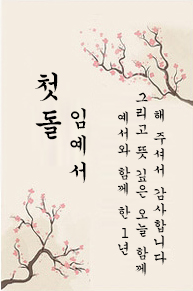 첫돌
임예서
예서와 함께 한 1년
그리고 뜻 깊은 오늘 함께
해 주셔서 감사합니다